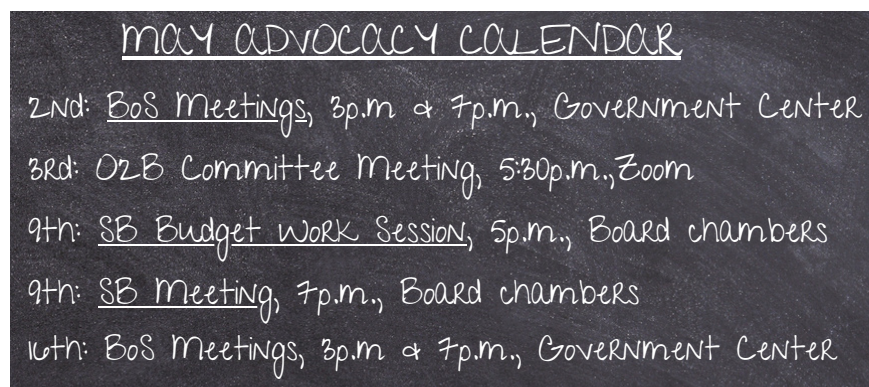 MAY ADVOCACY CALENDAR
2nd: BoS Meetings, 3p.m & 7p.m., Government Center
3rd: O2B Committee Meeting, 5:30p.m.,Zoom
9th: SB Budget Work Session, 5p.m., Board chambers
9th: SB Meeting, 7p.m., Board chambers
16th: BoS Meetings, 3p.m & 7p.m., Government Center